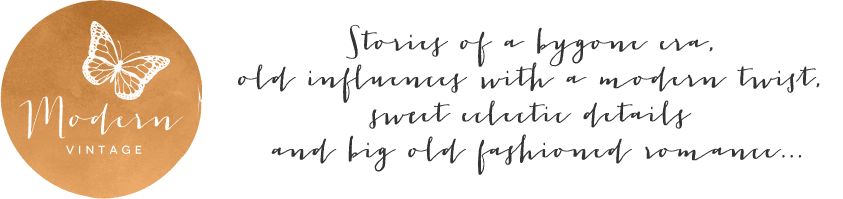 Modern
VINTAGE
Stories of a bygone era,
old influences with a modern twist,
sweet eclectic details
and big old fashioned romance...